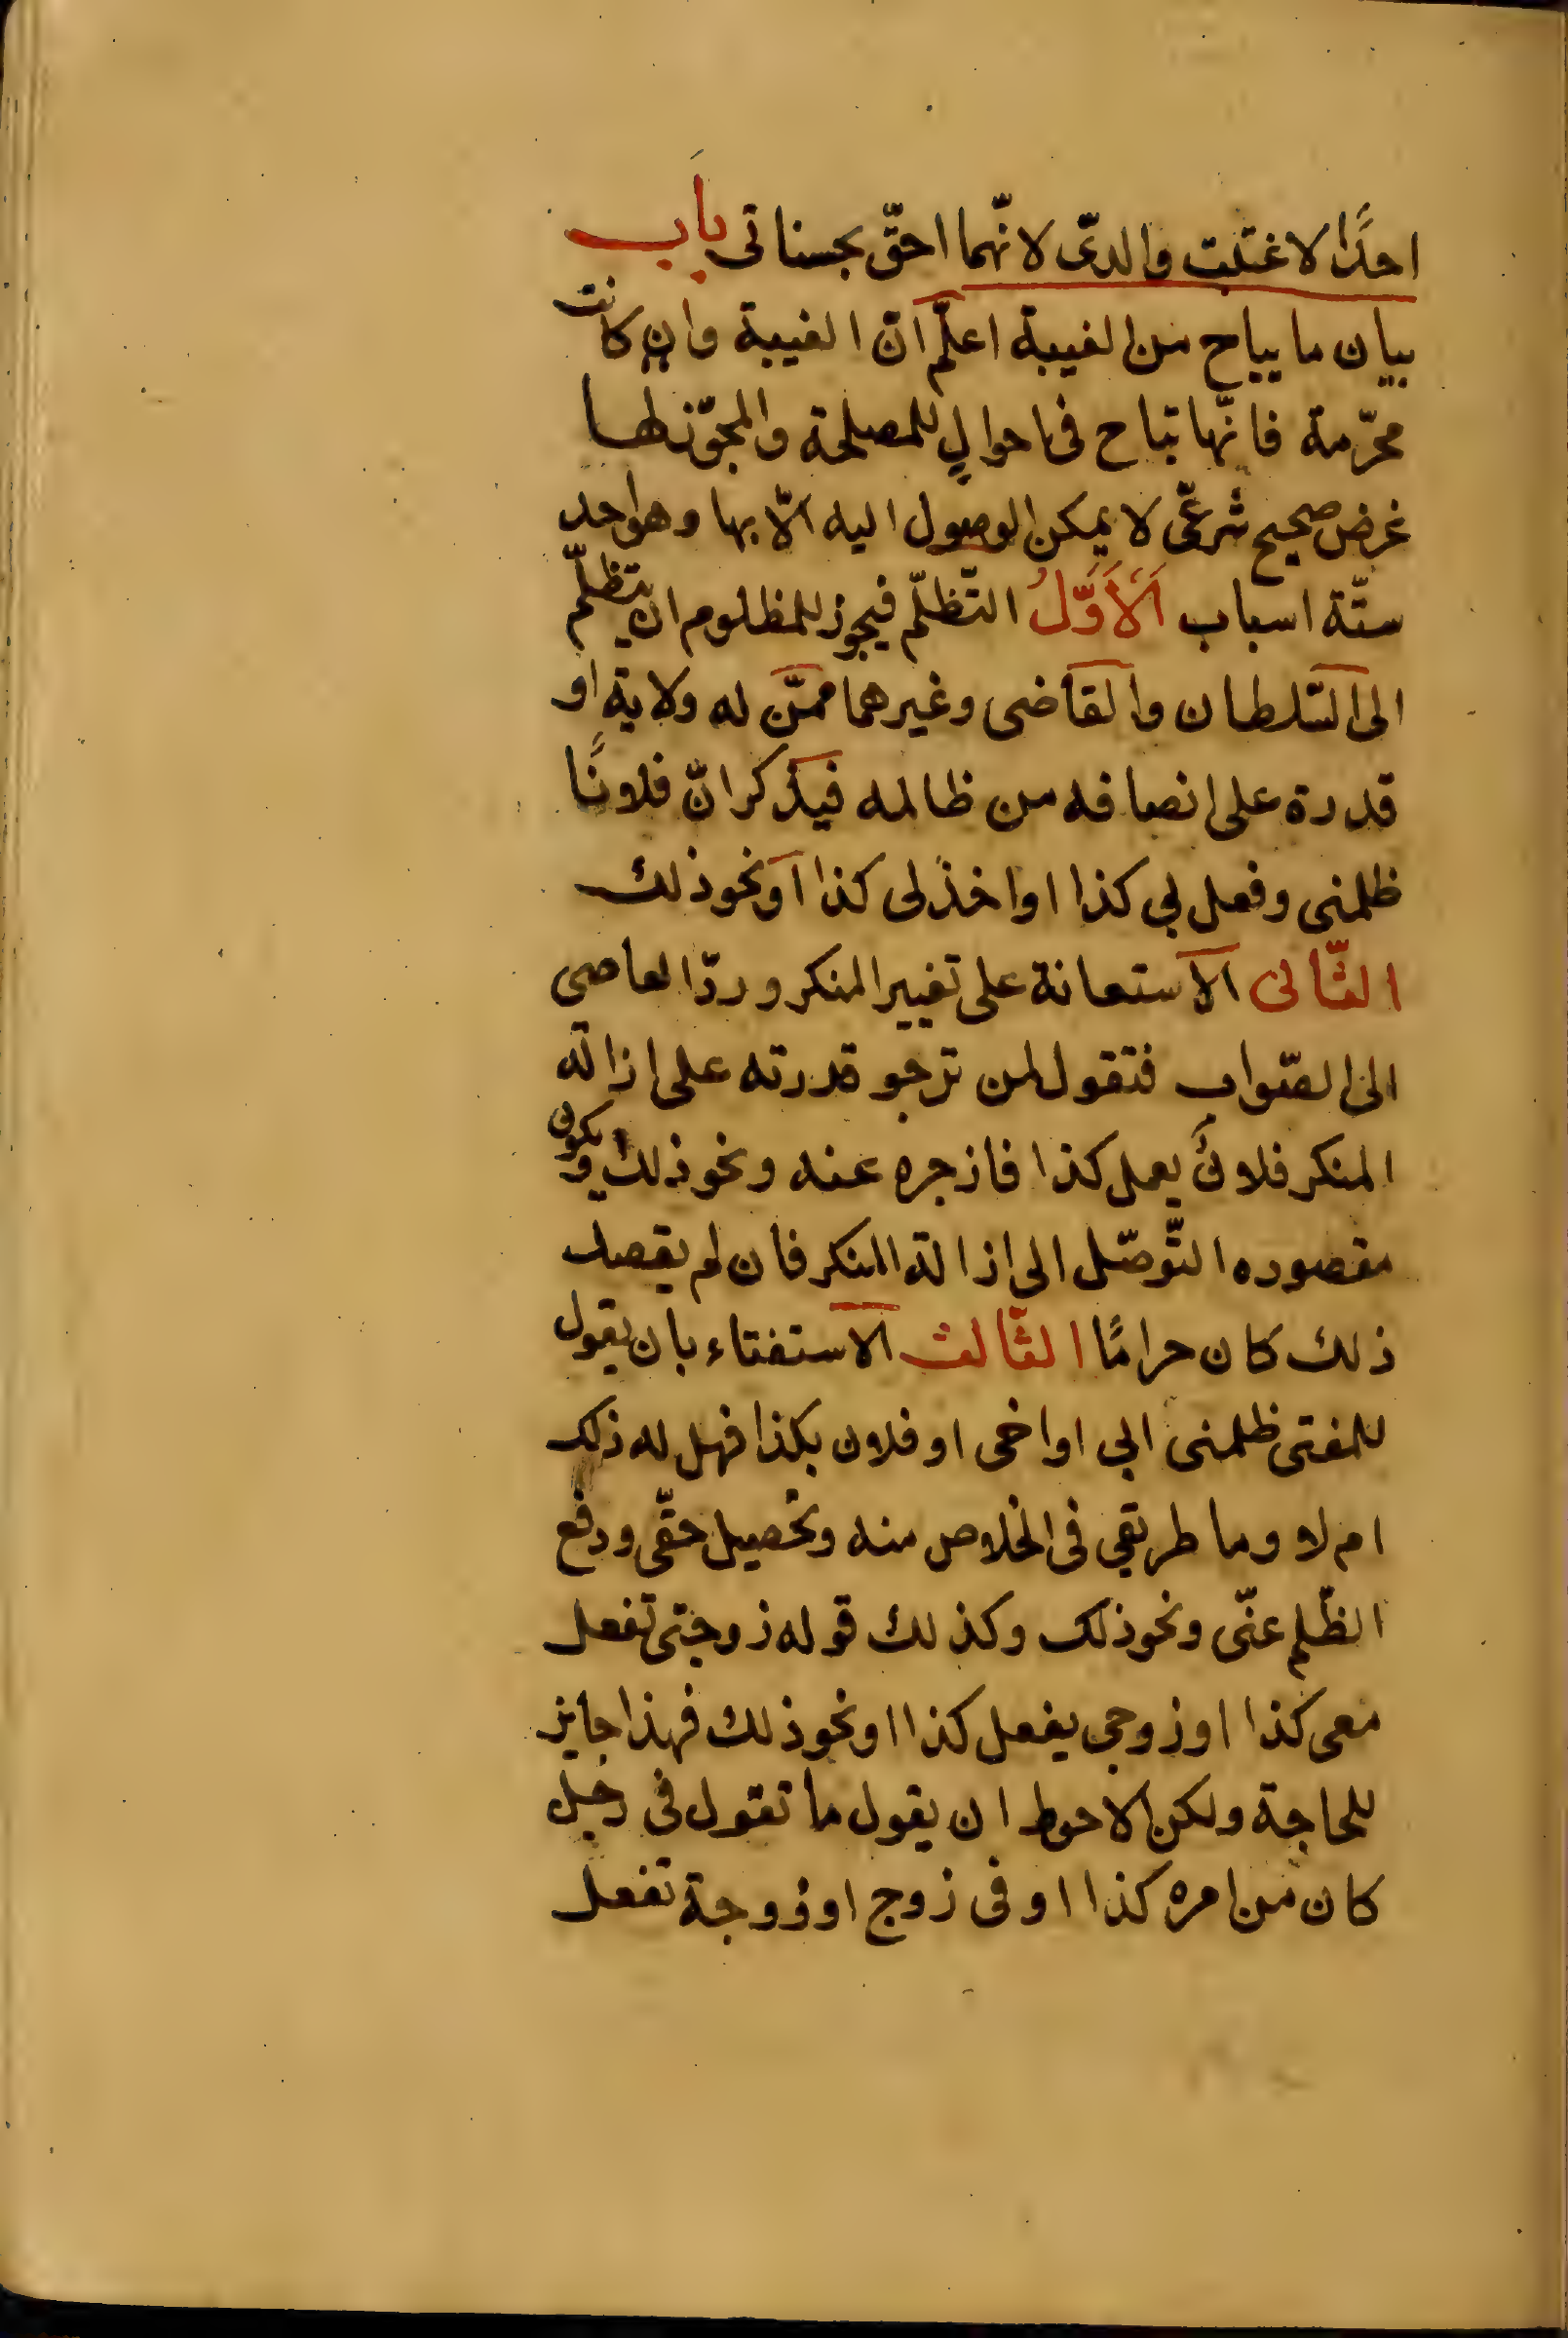 احدًا لاغتبت والدىّ لانّهما احقّ بحسناتى باب
بيان ما يباح من الغيبة اعلم انّ الغيبة وان كانت
محرّمة فانّها تباح فى احوالٍ للمصلحة والمجوّز لها
غرض صحيح شرعىّ لا يمكن الوصول اليه الّا بها وهو احد
ستّة اسباب اَلْاَوَّلُ التّظلّم فيجوز للمظلوم ان يتظلّم
الى السّلطان والقاضى وغيرهما ممّن له ولاية او
قدرة على انصافه من ظالمه فيذكر انّ فلانًا
ظلمنى وفعل بى كذا او اخذ لى كذا او نحو ذلك
الثّانى الاستعانة على تغيير المنكر وردّ العاصى
الى الصّواب فتقول لمن ترجو قدرته على ازالة
المنكر فلانٌ يعمل كذا فازجره عنه ونحو ذلك ويكون
مقصوده التّوصّل الى ازالة المنكر فان لم يقصد
ذلك كان حرامًا الثّالث الاستفتاء بان يقول
للمفتى ظلمنى ابى او اخى او فلان بكذا فهل له ذلك
ام لا وما طريقى فى الخلاص منه وتحصيل حقّى ودفع
الظّلم عنّى ونحو ذلك وكذلك قوله زوجتى تفعل
معى كذا او زوجى يفعل كذا او نحو ذلك فهذا جايز
للحاجة ولكن الاحوط ان يقول ما تقول فى رجل
كان من امره كذا او فى زوج او زوجة تفعل